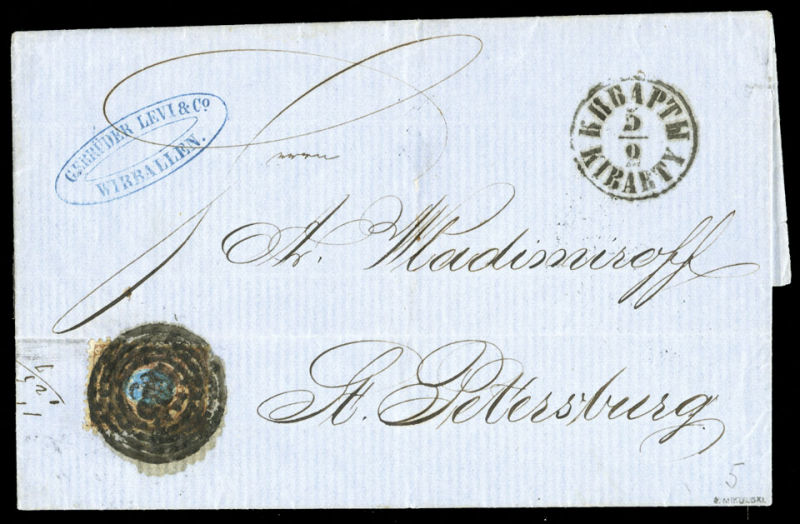 GEBRÜDER LEVI & Co
WIRBALLEN.
КИБАРТЫ
5
2
KIBARTY
Herrn
A. Wladimiroff
St. Petersburg
5